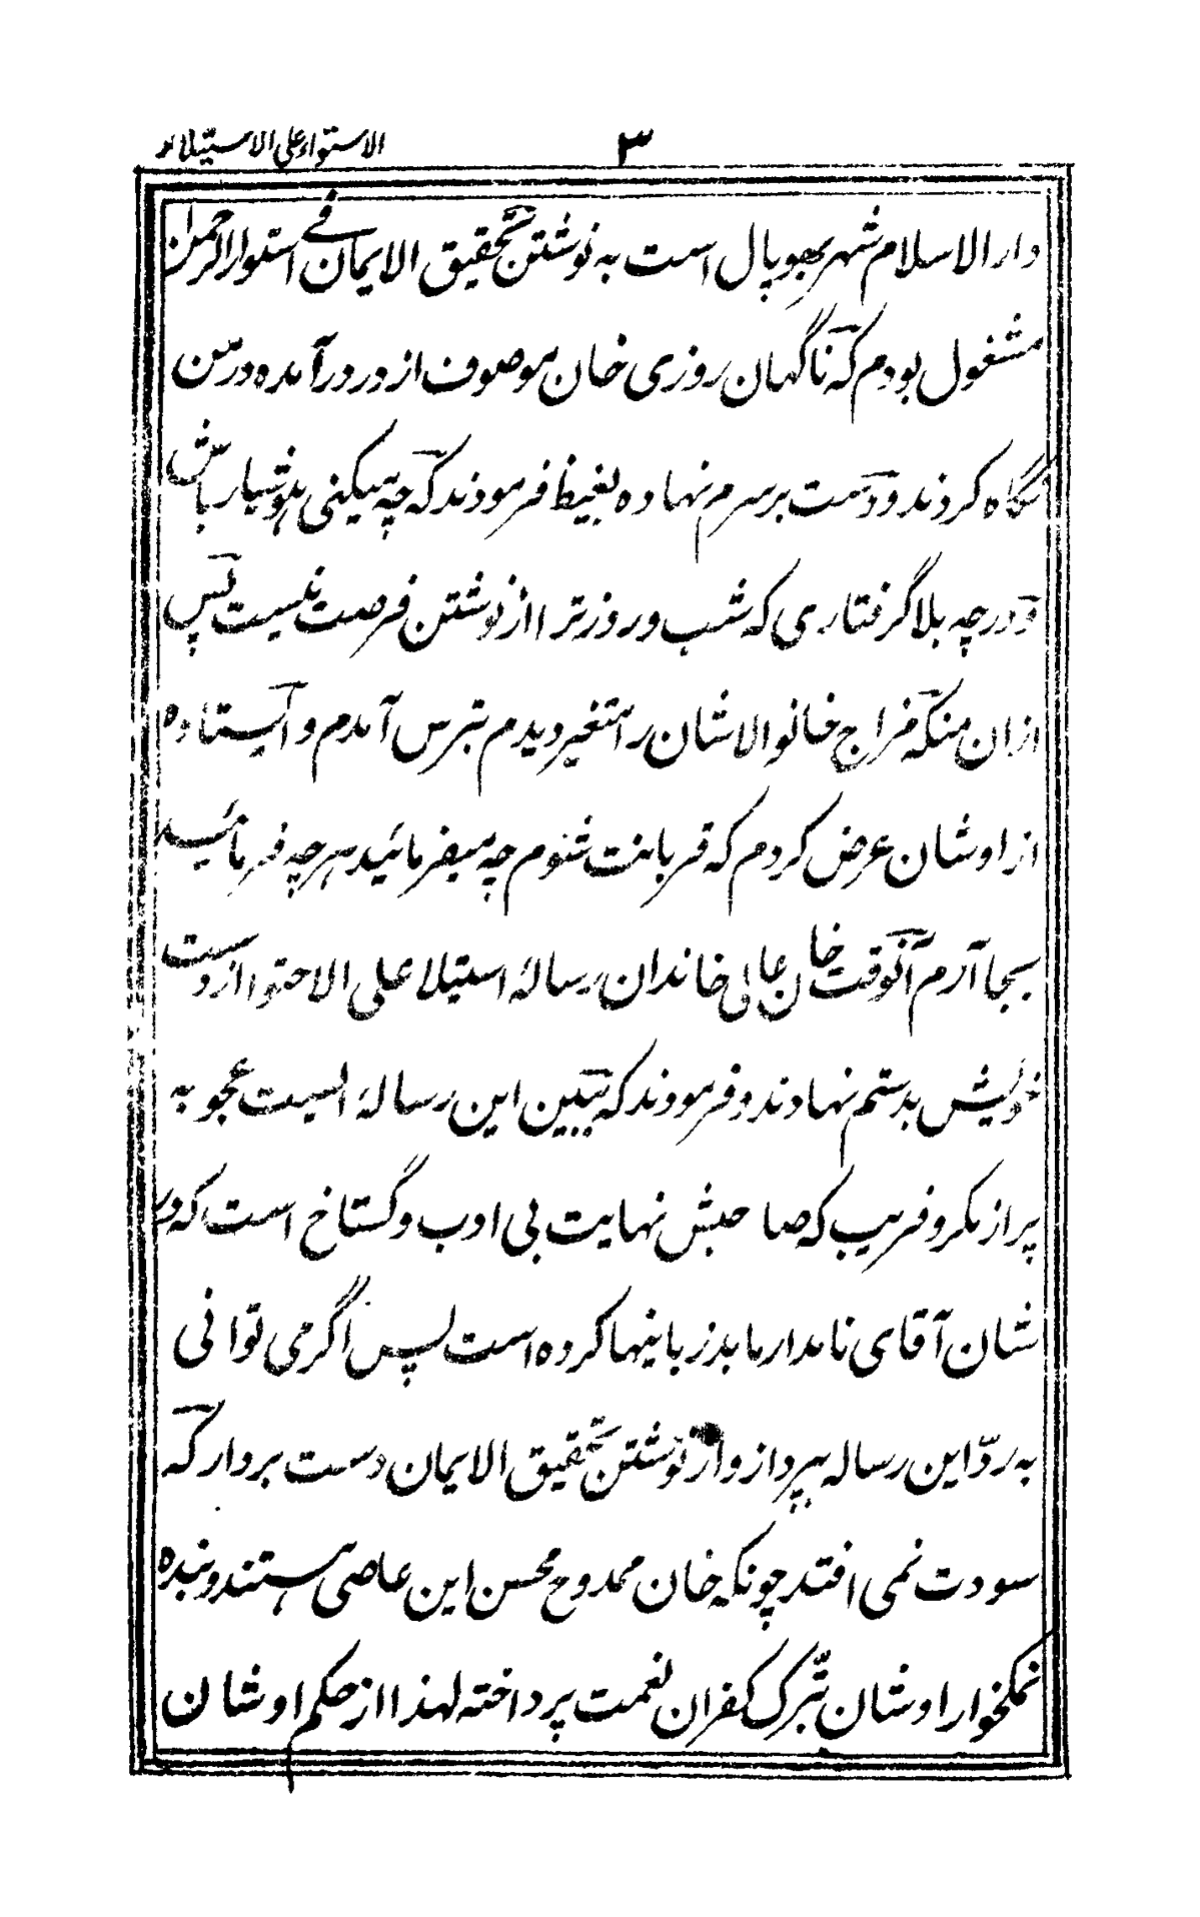 ۳ الاستواء علی الاستیلاء
دار الاسلام شهر بهوپال است به نوشتن تحقیق الایمان فی استواء الرحمن
مشغول بودم که ناگهان روزی خان موصوف از در درآمده در من
نگاه کردند و دست بر سرم نهاده بغیظ فرمودند که چه میکنی هوشیار باش
و در چه بلا گرفتاری که شب و روز ترا از نوشتن فرصت نیست پس
ازان منکه مزاج خانوالاشان را متغیر دیدم بترس آمدم و ایستاده
از اوشان عرض کردم که قربانت شوم چه میفرمائید هرچه فرمائید
بجا آرم آنوقت خان عالی خاندان رسالۀ استیلا علی الاحتوا از دست
خویش بدستم نهادند و فرمودند که ببین این رسالۀ ایست عجوبه
پر از مکر و فریب که صاحبش نهایت بی ادب و گستاخ است که در
شان آقای نامدار ما بدزبانیها کرده است پس اگر می توانی
به ردّ این رساله بپرداز و از نوشتن تحقیق الایمان دست بردار که
سودت نمی افتد چونکه خان ممدوح محسن این عاصی هستند و بنده
نمکخوار اوشان بترک کفران نعمت پرداخته لهذا از حکم اوشان